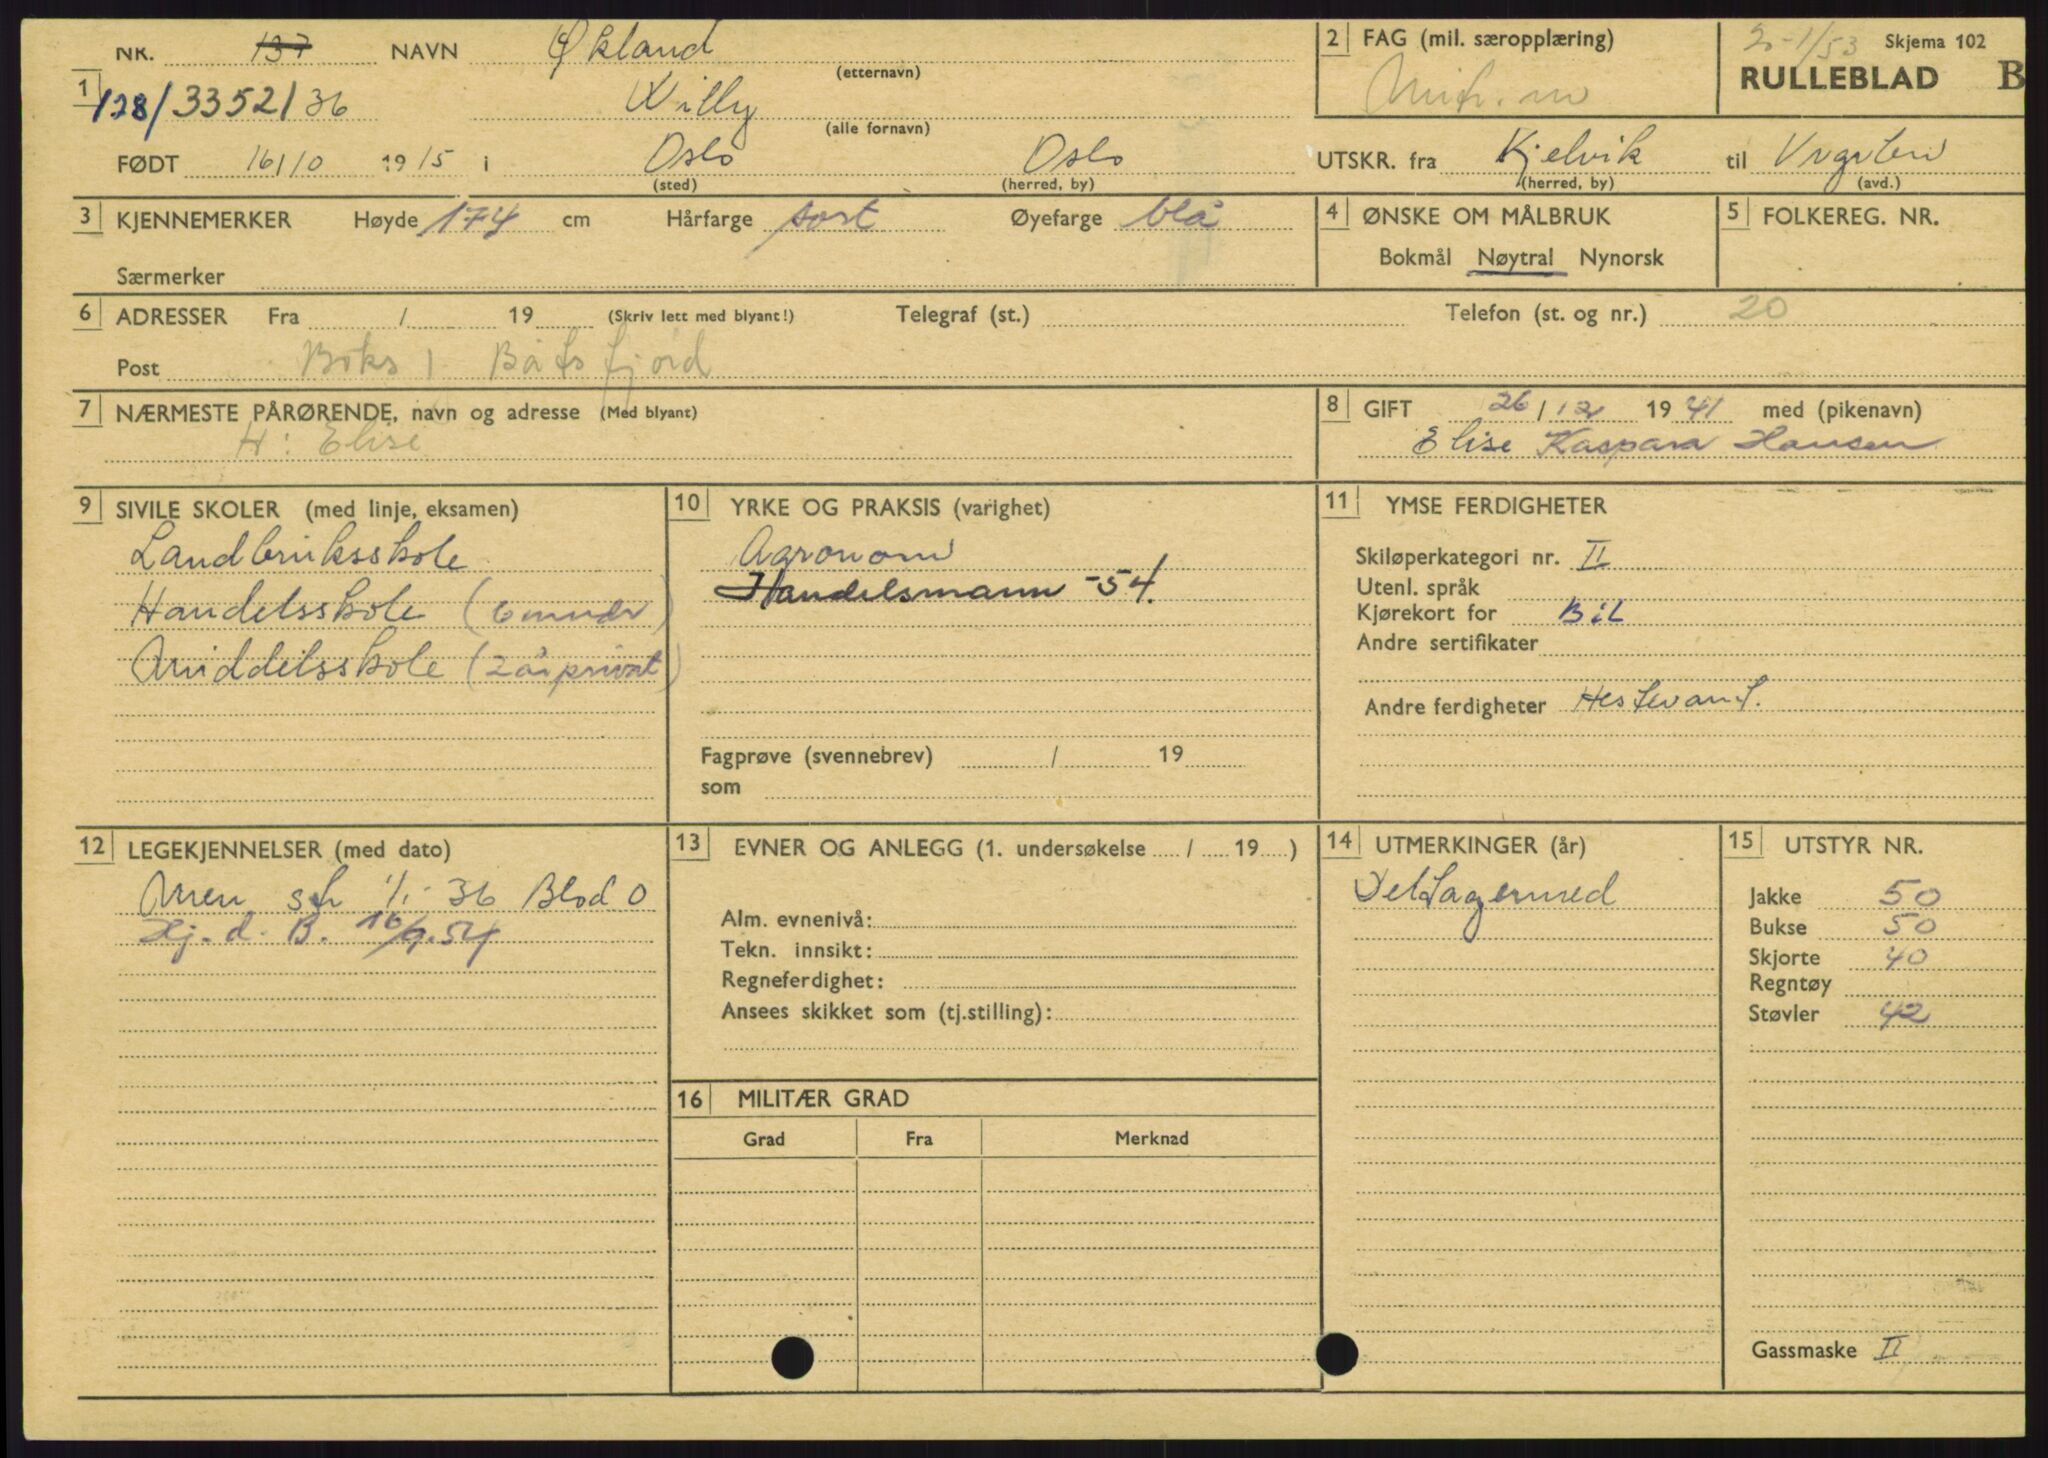 NR. 137 NAVN Økland (etternavn)
1 128/3352/36 Willy (alle fornavn)
FØDT 16/10 1915 i Oslo (sted) Oslo (herred, by)
2 FAG (mil. særopplæring)
Mitr. m
20-1/53 Skjema 102
RULLEBLAD B
UTSKR. fra Kjelvik (herred, by) til (avd.)
3 KJENNEMERKER Høyde 174 cm Hårfarge sort Øyefarge blå
Særmerker
4 ØNSKE OM MÅLBRUK
Bokmål Nøytral Nynorsk
5 FOLKEREG. NR.
6 ADRESSER Fra / 19 (Skriv lett med blyant!) Telegraf (st.) Telefon (st. og nr.) 20
Post Boks 1 Båtsfjord
7 NÆRMESTE PÅRØRENDE, navn og adresse (Med blyant)
H: Elise
8 GIFT 26/12 1941 med (pikenavn)
Elise Kaspara Hansen
9 SIVILE SKOLER (med linje, eksamen)
Landbruksskole
Handelsskole (6 mndr)
Middelsskole (2 år privat)
10 YRKE OG PRAKSIS (varighet)
Agronom
Handelsmann -54.
Fagprøve (svennebrev) / 19
som
11 YMSE FERDIGHETER
Skiløperkategori nr. II
Utenl. språk
Kjørekort for Bil
Andre sertifikater
Andre ferdigheter Hestevant.
12 LEGEKJENNELSER (med dato)
Blod O
Kj. d. B. 16/9.54
13 EVNER OG ANLEGG (1. undersøkelse / 19 )
Alm. evnenivå:
Tekn. innsikt:
Regneferdighet:
Ansees skikket som (tj.stilling):
14 UTMERKINGER (år)
Deltagermed
15 UTSTYR NR.
Jakke 50
Bukse 50
Skjorte 40
Regntøy
Støvler 42
Gassmaske II
16 MILITÆR GRAD
Grad Fra Merknad